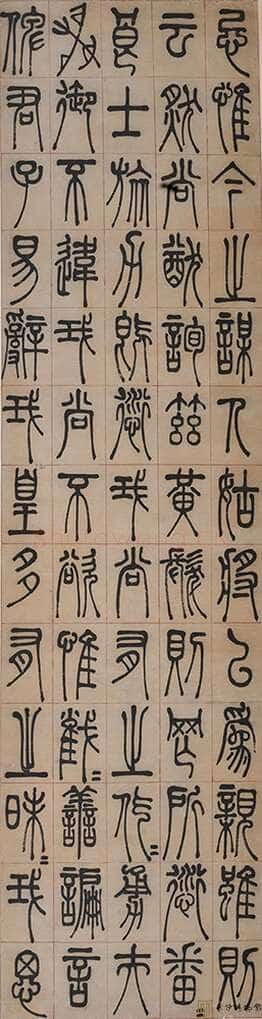 忌惟今之謀人姑將以為親雖則
云然尚猷詢茲黃髮則罔所愆番
良士旅力既愆我尚有之仡〻勇夫
射御不違我尚不欲惟截〻善諞言
俾君子易辭我皇多有之昧〻我思